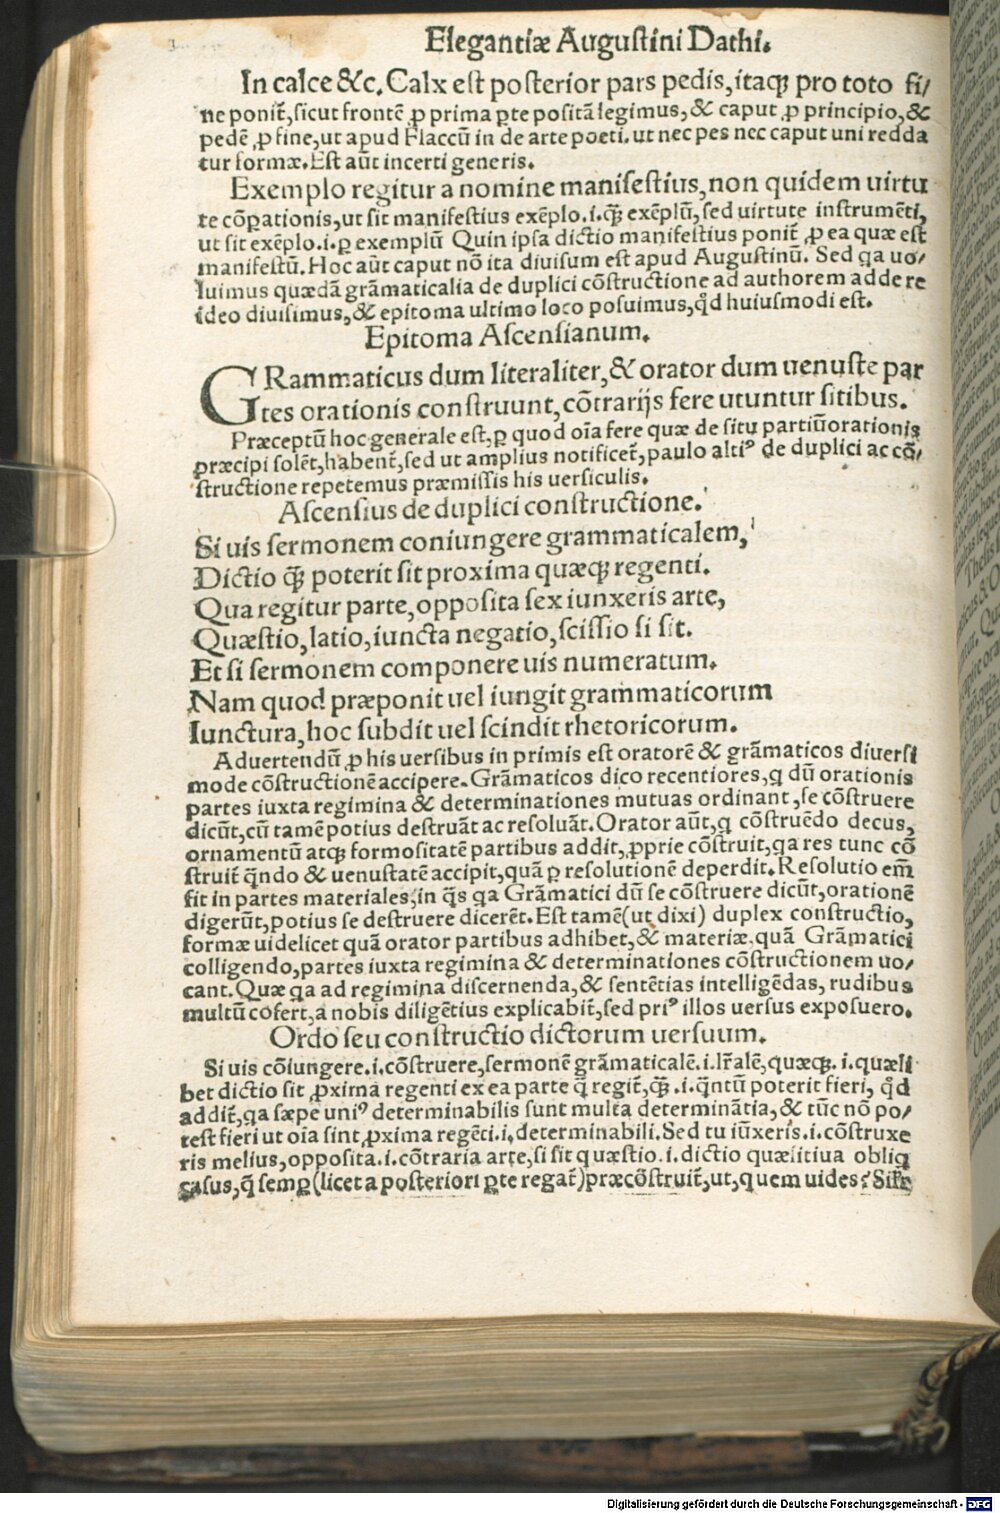 Elegantiæ Augustini Dathi.
In calce &c. Calx est posterior pars pedis, itaqꝫ pro toto fi/
ne ponit̃, sicut frontẽ ꝓ prima ꝑte positã legimus, & caput ꝓ principio, &
pedẽ ꝓ fine, ut apud Flaccũ in de arte poeti. ut nec pes nec caput uni redda
tur formæ. Est aũt incerti generis.
Exemplo regitur a nomine manifestius, non quidem uirtu
te cõꝑationis, ut sit manifestius exẽplo. i. qꝫ̃ exẽplũ, sed uirtute instrumẽti,
ut sit exẽplo. i. ꝑ exemplũ Quin ipsa dictio manifestius ponit̃ ꝓ ea quæ est
manifestũ. Hoc aũt caput nõ ita diuisum est apud Augustinũ. Sed qa uo/
luimus quædã grãmaticalia de duplici cõstructione ad authorem addere
ideo diuisimus, & epitoma ultimo loco posuimus, qd̃ huiusmodi est.
Epitoma Ascensianum.
GRammaticus dum literaliter, & orator dum uenuste par
tes orationis construunt, cõtrarijs fere utuntur sitibus.
Præceptũ hoc generale est, ꝑ quod oĩa fere quæ de situ partiũ orationis
præcipi solẽt, habent̃, sed ut amplius notificet̃, paulo altiꝰ de duplici ac cõ/
structione repetemus præmissis his uersiculis.
Ascensius de duplici constructione.
Si uis sermonem coniungere grammaticalem,
Dictio qꝫ̃ poterit sit proxima quæqꝫ regenti.
Qua regitur parte, opposita sex iunxeris arte,
Quæstio, latio, iuncta negatio, scissio si sit.
Et si sermonem componere uis numeratum.
Nam quod præponit uel iungit grammaticorum
Iunctura, hoc subdit uel scindit rhetoricorum.
Aduertendũ ꝓ his uersibus in primis est oratorẽ & grãmaticos diuersi
mode cõstructionẽ accipere. Grãmaticos dico recentiores, q dũ orationis
partes iuxta regimina & determinationes mutuas ordinant, se cõstruere
dicũt, cũ tamẽ potius destruãt ac resoluãt. Orator aũt, q cõstruẽdo decus,
ornamentũ atqꝫ formositatẽ partibus addit, ꝓprie cõstruit, qa res tunc cõ
struit̃ qñdo & uenustatẽ accipit, quã ꝑ resolutionẽ deperdit. Resolutio em̃
fit in partes materiales, in q̃s qa Grãmatici dũ se cõstruere dicũt, orationẽ
digerũt, potius se destruere dicerẽt. Est tamẽ (ut dixi) duplex constructio,
formæ uidelicet quã orator partibus adhibet, & materiæ, quã Grãmatici
colligendo, partes iuxta regimina & determinationes cõstructionem uo/
cant. Quæ qa ad regimina discernenda, & sentẽtias intelligẽdas, rudibus
multũ cõfert, a nobis diligẽtius explicabit̃, sed priꝰ illos uersus exposuero.
Ordo seu constructio dictorum uersuum.
Si uis cõiungere. i. cõstruere, sermonẽ grãmaticalẽ. i. lr̃alẽ, quæqꝫ. i. quæli
bet dictio sit ꝓxima regenti ex ea parte q̃ regit̃, qꝫ̃. i. q̃ntũ poterit fieri, qd̃
addit̃, qa sæpe uniꝰ determinabilis sunt multa determinãtia, & tũc nõ po/
test fieri ut oĩa sint ꝓxima regẽti. i. determinabili. Sed tu iũxeris. i. cõstruxe
ris melius, opposita. i. cõtraria arte, si sit quæstio. i. dictio quæsitiua obliq
casus, q̃ semꝑ (licet a posteriori ꝑte regat̃) præcõstruit̃, ut, quem uides? Silr̃
Digitalisierung gefördert durch die Deutsche Forschungsgemeinschaft - DFG